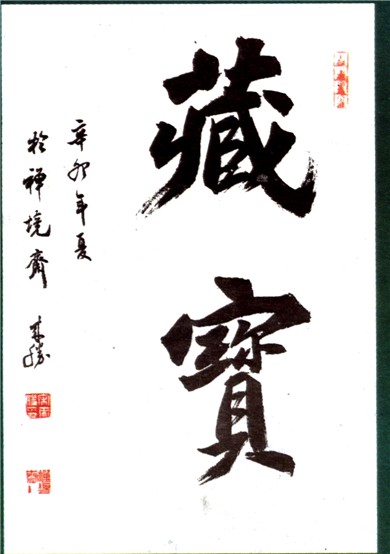 藏寶
辛卯年夏
於禪境齋